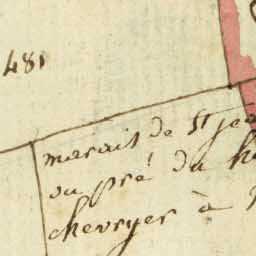 481
marait de St jea
ou pré du h
chevryer à